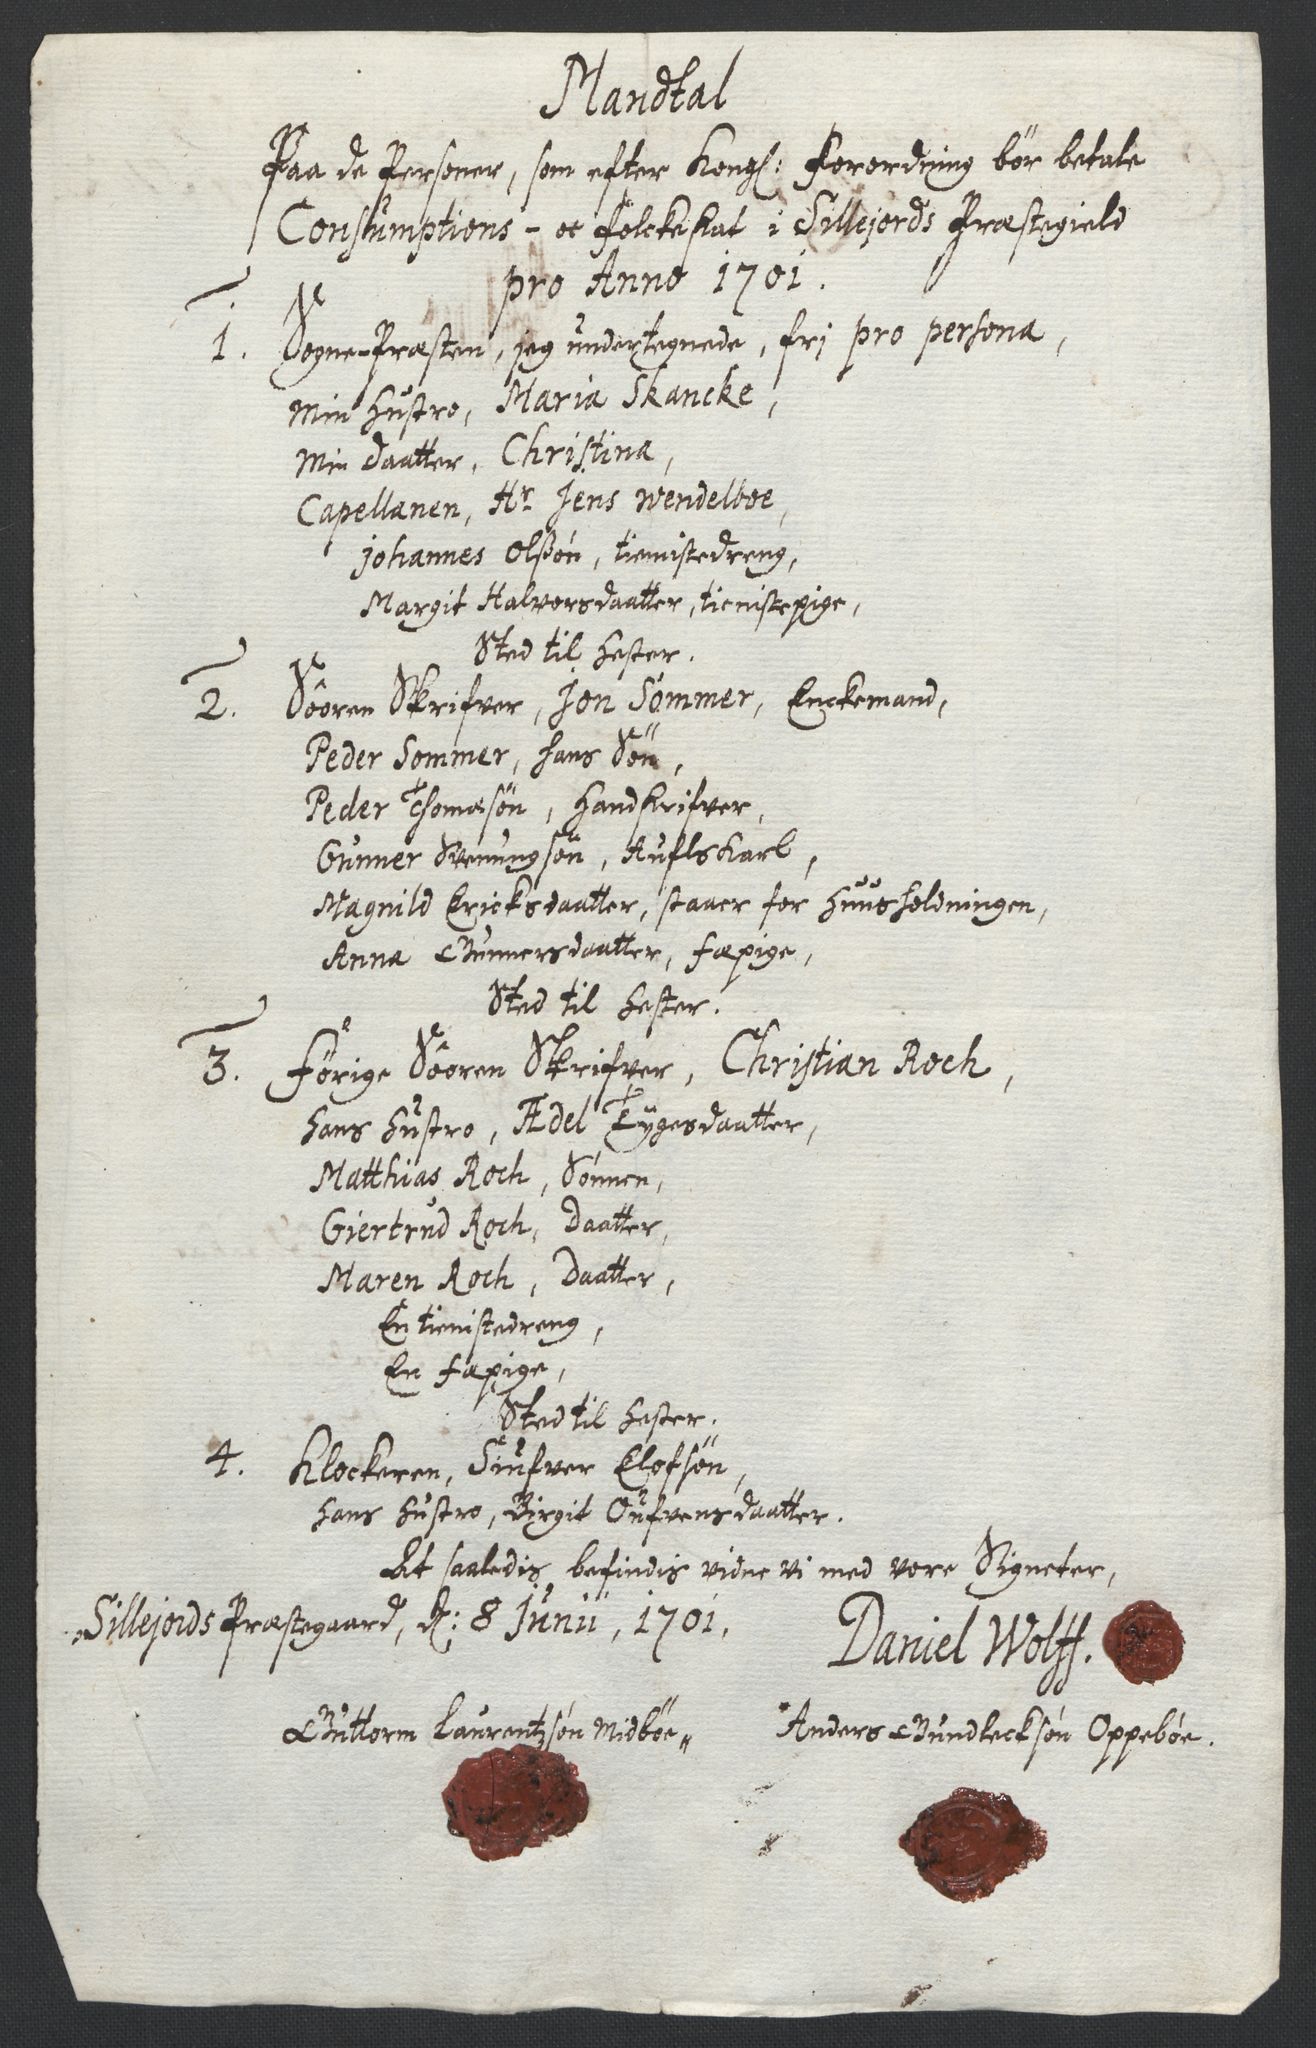 Mandtal
Paa de Personer, som efter Kongl: Forordning bör betale
Consumptions - oc Folckeskat i Sillejords Præstegield
pro Anno 1701.
1. Sogne-Præsten, jeg undertegnede, frj pro persona,
Min Hustro, Maria Skancke,
Min Daatter, Christina,
Capellanen, Hr Jens Wendelboe,
Johannes Olssön, tienistedreng,
Margit Halvorsdaatter, tienistepige,
Sted til Hester.
2. Sooren Skrifver, Jon Sommer, Enckemand,
Peder Sommer, hans Sön,
Peder Thomæsön, Handskrifver,
Gunner Svenungsön, Aufls Karl,
Magnild Ericksdaatter, staaer for Huusholdningen,
Anna Gunnersdaatter, fæpige,
Sted til Hester.
3. Förige Sooren Skrifver, Christian Roch,
Hans Hustro, Ædel Tygesdaatter,
Matthias Roch, Sönnen,
Giertrud Roch, Daatter,
Maren Roch, Daatter,
En tienistedreng,
En fæpige,
Sted til Hester.
4. Klockeren, Siufver Elofsön,
Hans Hustro, Birgit Oufvensdaatter.
At saaledis befindis vidne vi med vore Signeter,
Sillejords Præstegaard, d: 8 Junii, 1701.
Daniel Wolff.
Guttorm Laurentzsön Midböe
Anders Gundlecksön Oppeböe.